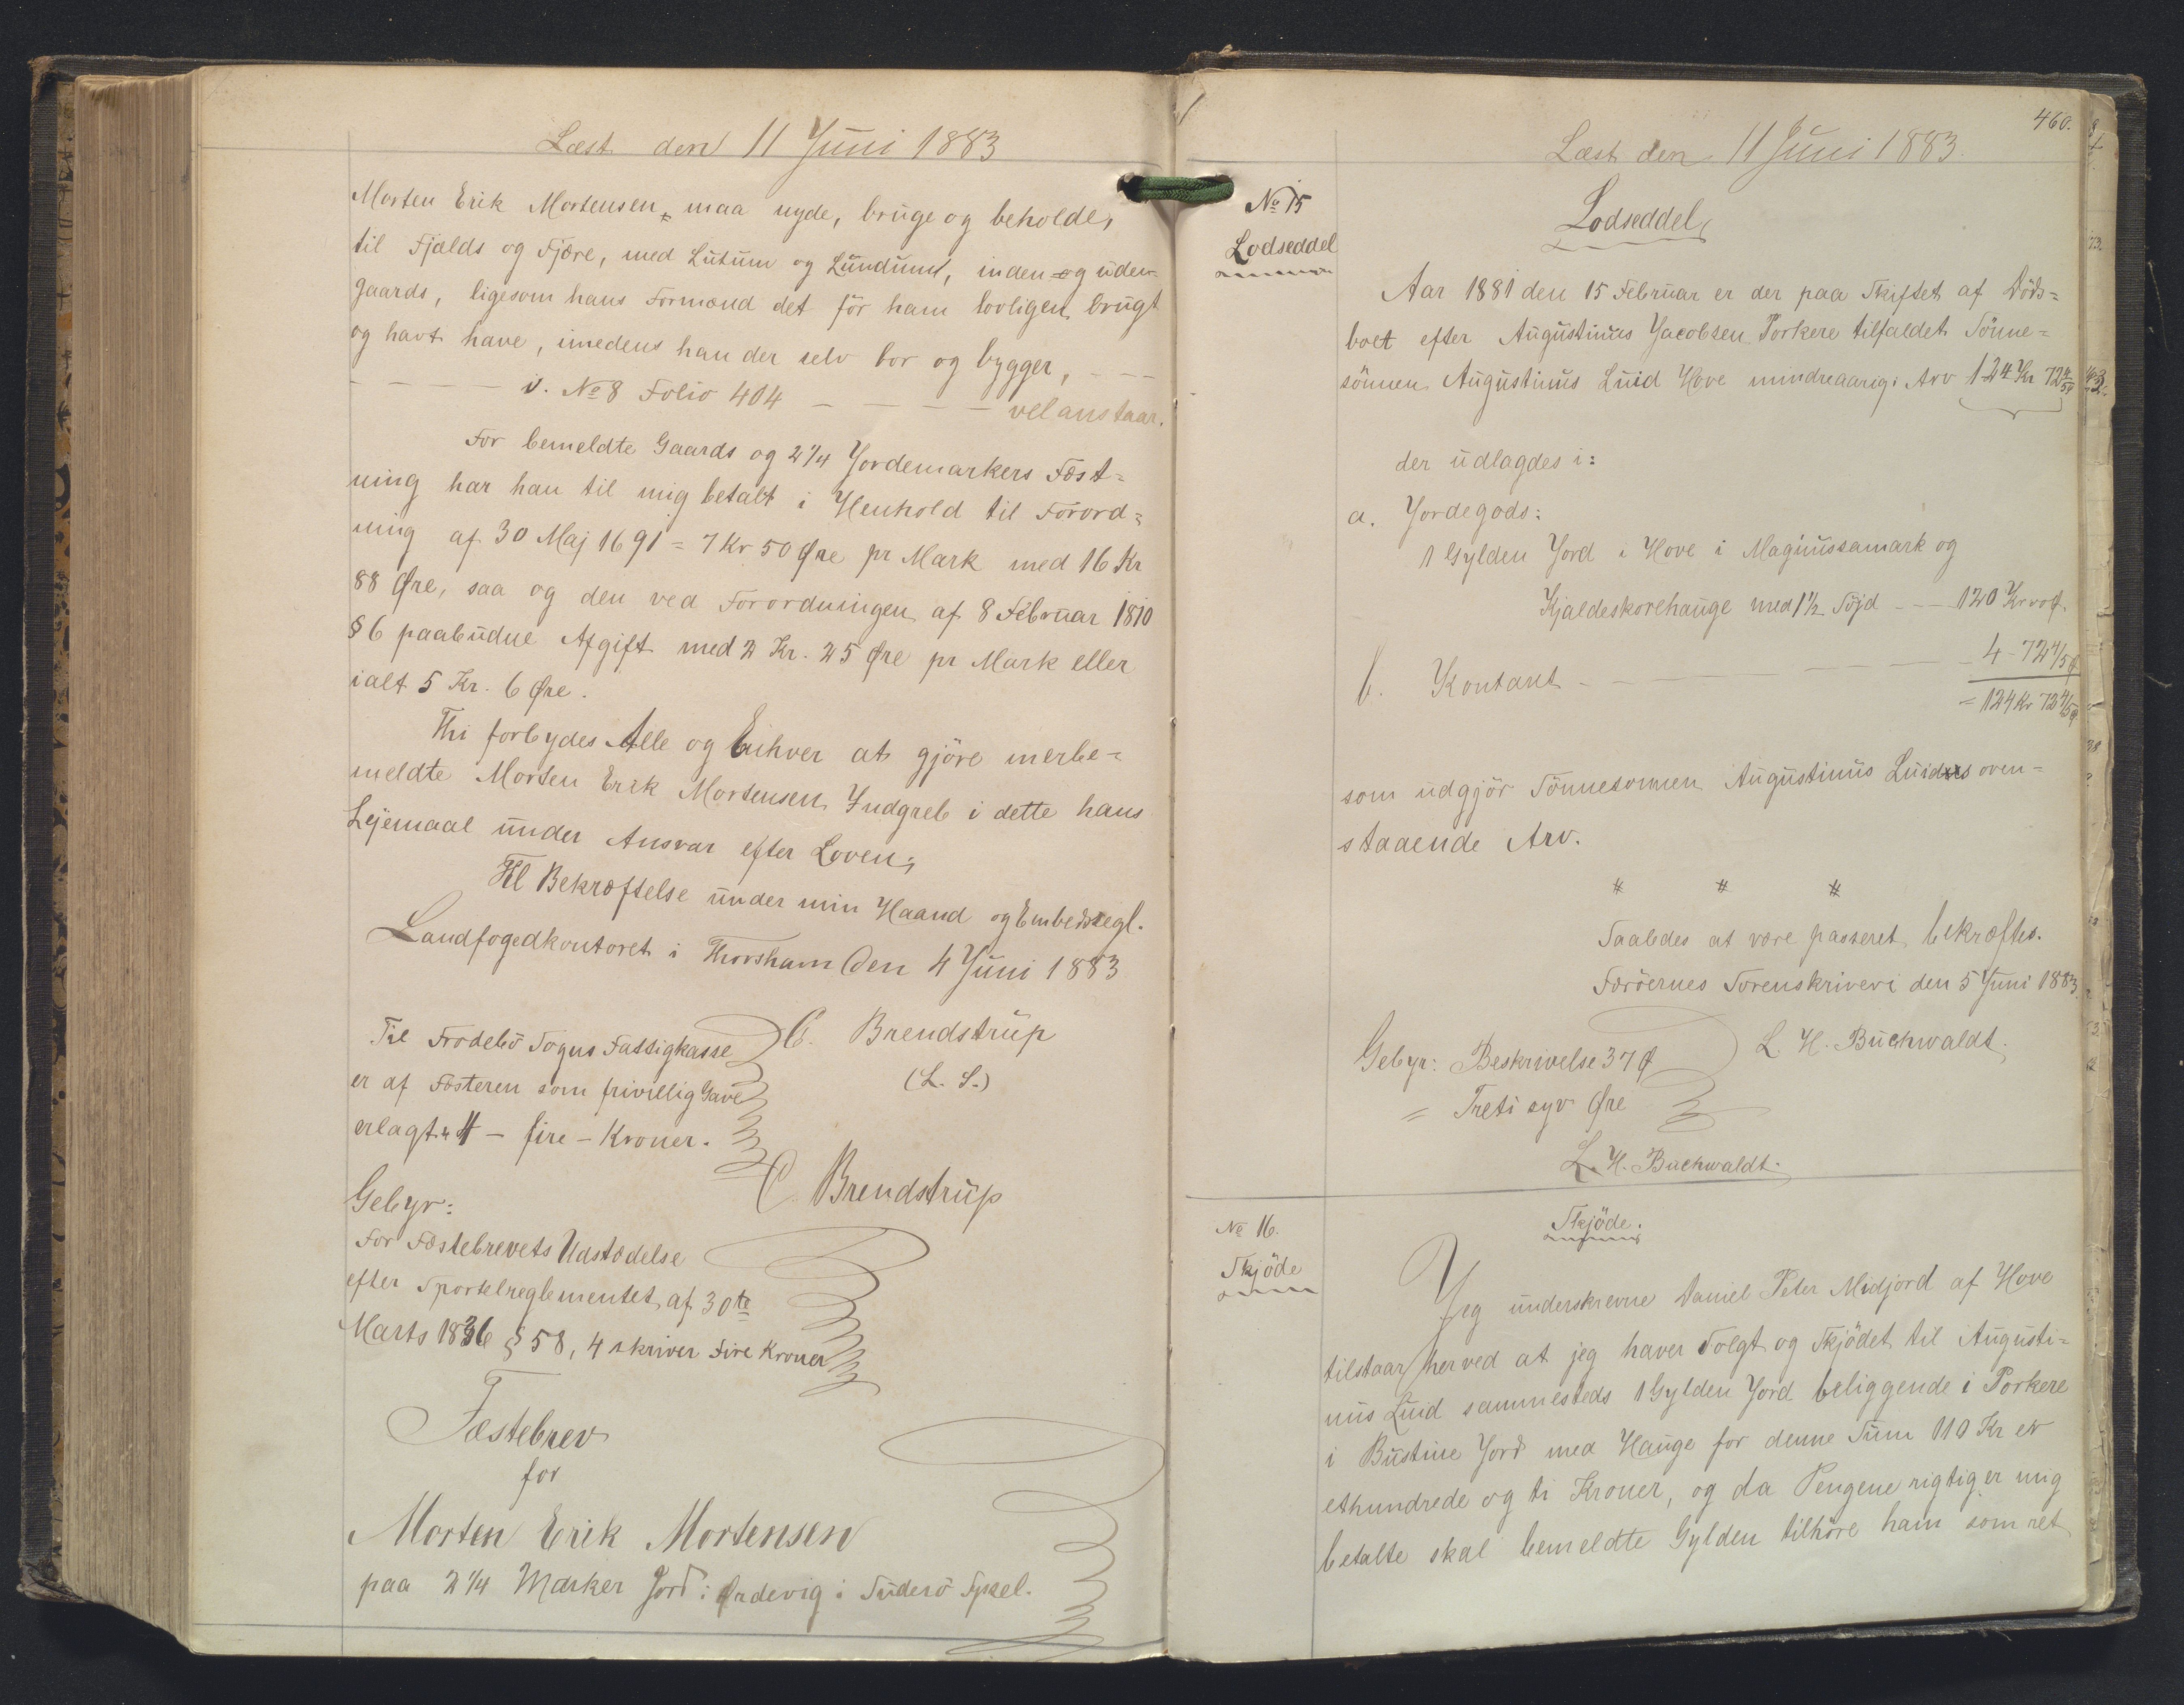 Læst den 11 Juni 1883
Morten Erik Mortensen, maa nyde, bruge og beholde,
til Fjælds og Fjære, med Lutum og Lundum, inden og uden-
gaards, ligesom hans Formænd det för ham lovligen brugt
og havt have, imedens han der selv bor og bygger, - - -
- - - - v. No 8 Folio 404 - - - - - vel anstaar.
For bemeldte Gaards og 2 1/4 Jordemarkers Fæst=
ning har han til mig betalt i Henhold til Forord=
ning af 30 Maj 1691 = 7 Kr 50 Øre pr Mark med 16 Kr
88 Øre, saa og den ved Forordningen af 8 Februar 1810
§ 6 paabudne Afgift med 2 Kr. 25 Øre pr Mark eller
ialt 5 Kr. 6 Øre.
Thi forbydes Alle og Enhver at gjöre merbe=
meldte Morten Erik Mortensen Indgreb i dette hans
Lejemaal under Ansvar efter Loven;
Til Bekræftelse under min Haand og Embedssegl.
Landfogedkontoret i Thorshavn den 4 Juni 1883
C. Brendstrup
(L. S.)
Til Frodebö Sogns Fattigkasse
er af Fæsteren som frivillig Gave
erlagt 4 - fire - Kroner.
C. Brendstrup
Gebyr:
For Fæstebrevets Udstædelse
efter Sportelreglementet af 30te
Marts 1836 § 58, 4 skriver Fire Kroner
Fæstebrev
for
Morten Erik Mortensen
paa 2 1/4 Marker Jord i Ørdevig i Suderö Syssel.
460.
Læst den 11 Juni 1883.
No 15
Lodseddel
Lodseddel
Aar 1881 den 15 Februar er der paa Skiftet af Döds=
boet efter Augustinus Jacobsen Porkere tilfaldet Sönne=
sönnen Augustinus Luid Hove mindreaarig: Arv 124 Kr 72 4/5 Ø
der udlagdes i:
a. Jordegods:
1 Gylden Jord i Hove i Magnussamark og
Kjaldeskorehauge med 1 1/2 Söjd - - - 120 Kr 00 Ø.
b. Kontant - - - - - - 4 - 72 4/5 Ø
= 124 Kr 72 4/5 Ø
som udgjör Sönnesönnen Augustinus Luids oven=
staaende Arv.
Saaledes at være passeret bekræftes.
Færöernes Sorenskriveri den 5 Juni 1883.
L. H. Buchwaldt.
Gebyr: Beskrivelse 37 Ø
= Treti syv Øre
L. H. Buchwaldt.
No 16.
Skjöde
Skjöde.
Jeg underskrevne Daniel Peter Midjord af Hove
tilstaar herved at jeg haver Solgt og Skjödet til Augusti=
nus Luid sammesteds 1 Gylden Jord beliggende i Porkere
i Bustine Jord med Hauge for denne Sum 110 Kr er
ethundrede og ti Kroner, og da Pengene rigtig er mig
betalte skal bemeldte Gylden tilhöre ham som ret